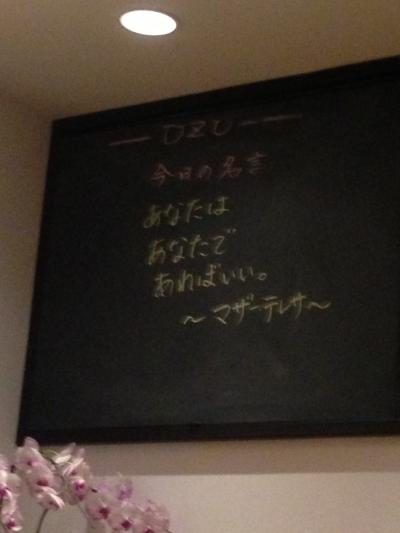 — OZU —
今日の名言
あなたは
あなたで
あればいい。
～マザーテレサ～